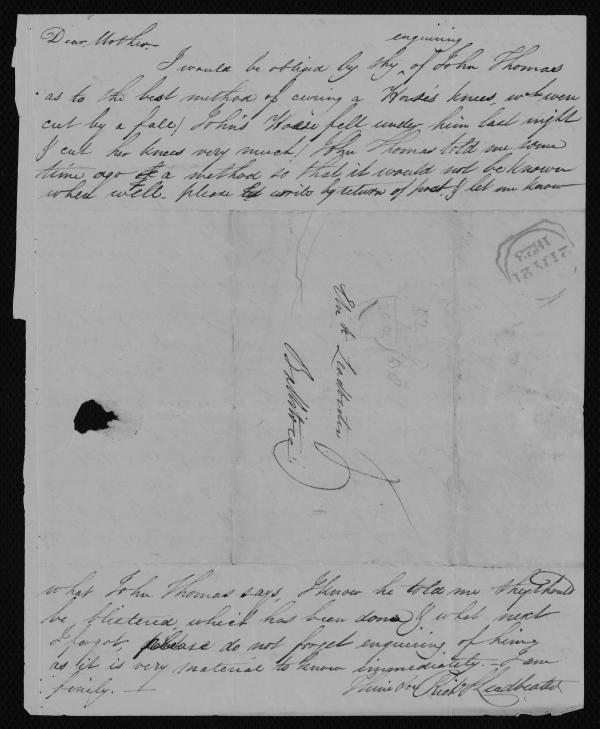 enquiring
Dear Mother,
I would be obliged by thy ^ of John Thomas
as to the best method of curing a Horse's knees, wch were
cut by a fall) John's Horse fell under him last night
& cut her knees very much) John Thomas told me some
time ago of a method so that it would not be known
when well. please to write by return of post & let me know
1823
Eliz. h Leadbeater
Ballitore
what John Thomas says, I know he told me they should
be blistered, which has been done & what next
I forgot, please do not forget enquiring of him
as it is very material to know immediately. – I am
finely. –
Thine &c Rich d Leadbeater